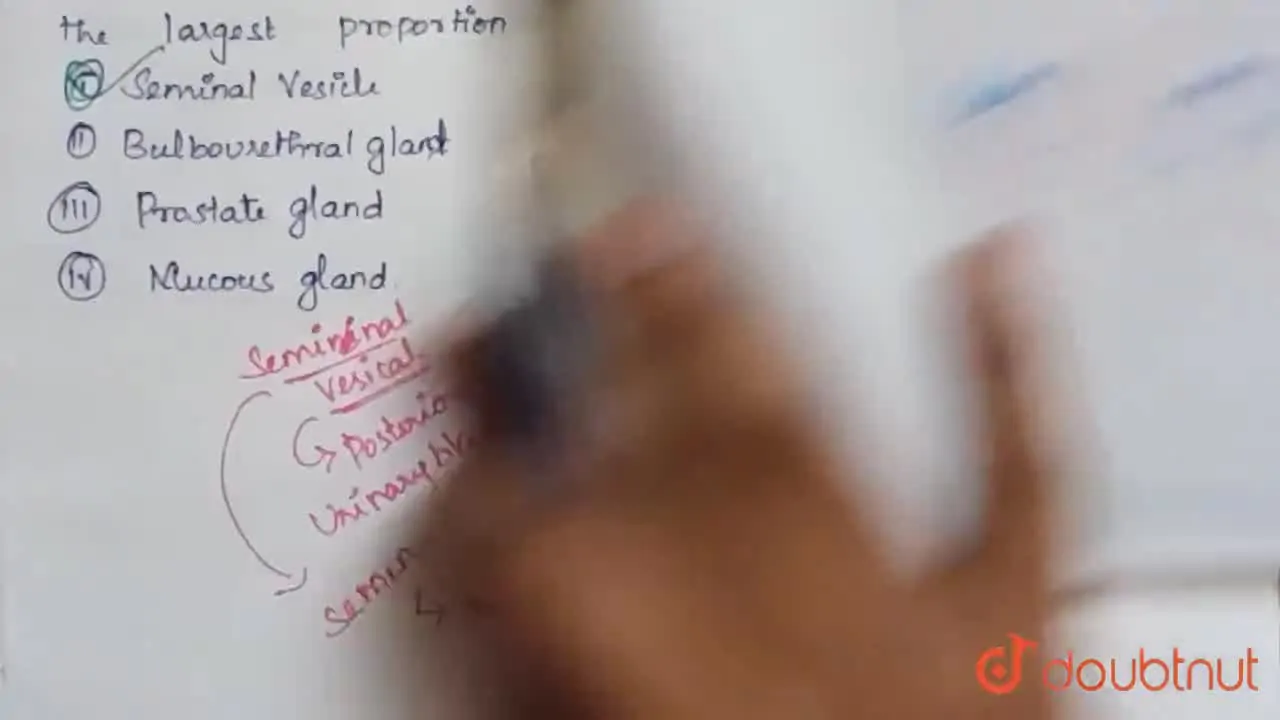 the largest proportion
Seminal Vesicle
II Bulbourethral gland
III Prastate gland
IV Mucous gland
Semininal
Vesical
Posterio
Urinary
Semin
doubtnut